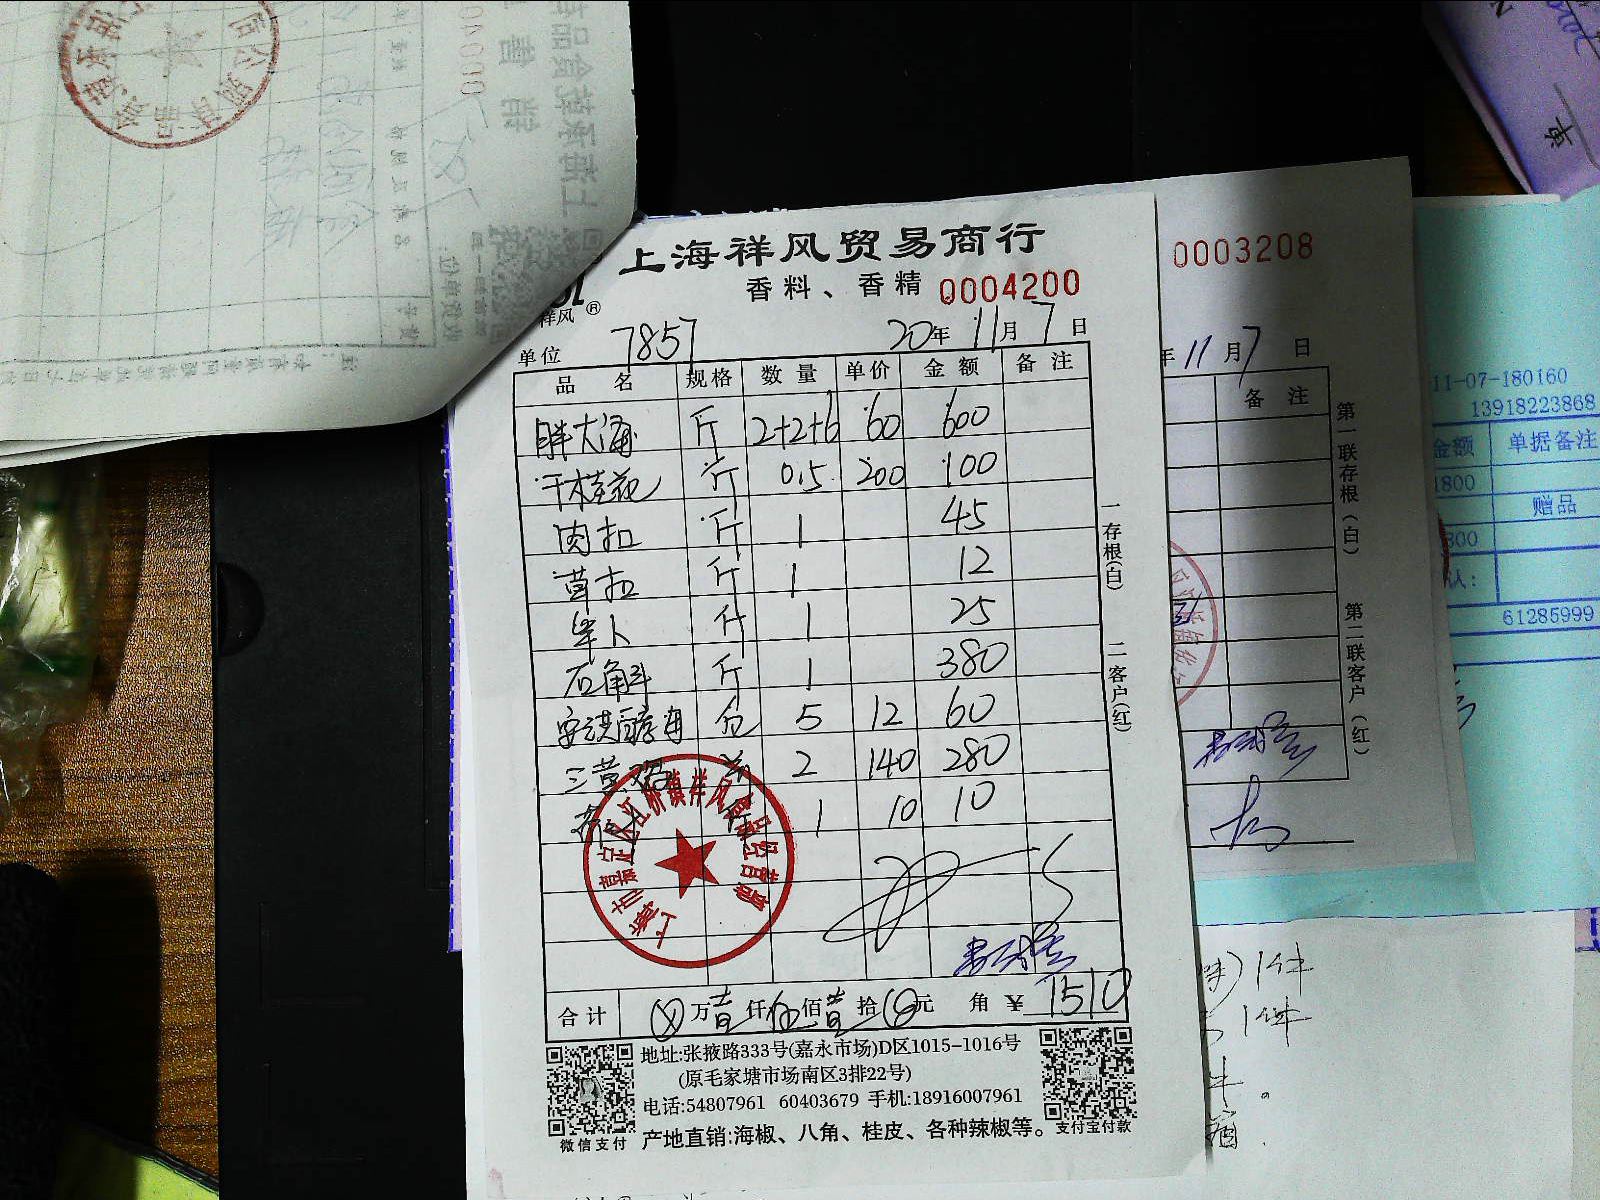 上海祥风贸易商行
香料、香精 0004200
祥风 ®
单位 7857 20年 11月 7日
品名 规格 数量 单价 金额 备注
胖大海 斤 2+2+6 60 600
干桂花 斤 0.5 200 100
肉扣 斤 1 45
草扣 斤 1 12
毕卜 斤 1 25
石斛 斤 1 380
安淇酵母 包 5 12 60
三黄鸡 2 140 280
1 10 10
上海市嘉定区江桥镇祥风食品经营部
一存根(白)
二客户(红)
合计 ⊗万壹仟伍佰壹拾0元 角 ¥1510
地址:张掖路333号(嘉永市场)D区1015-1016号
(原毛家塘市场南区3排22号)
电话:54807961 60403679 手机:18916007961
产地直销:海椒、八角、桂皮、各种辣椒等。
微信支付
支付宝付款
0003208
年 11月 7日
备注
第一联存根(白)
第二联客户(红)
11-07-180160
13918223868
金额 单据备注
1800
赠品
61285999
1件
1件